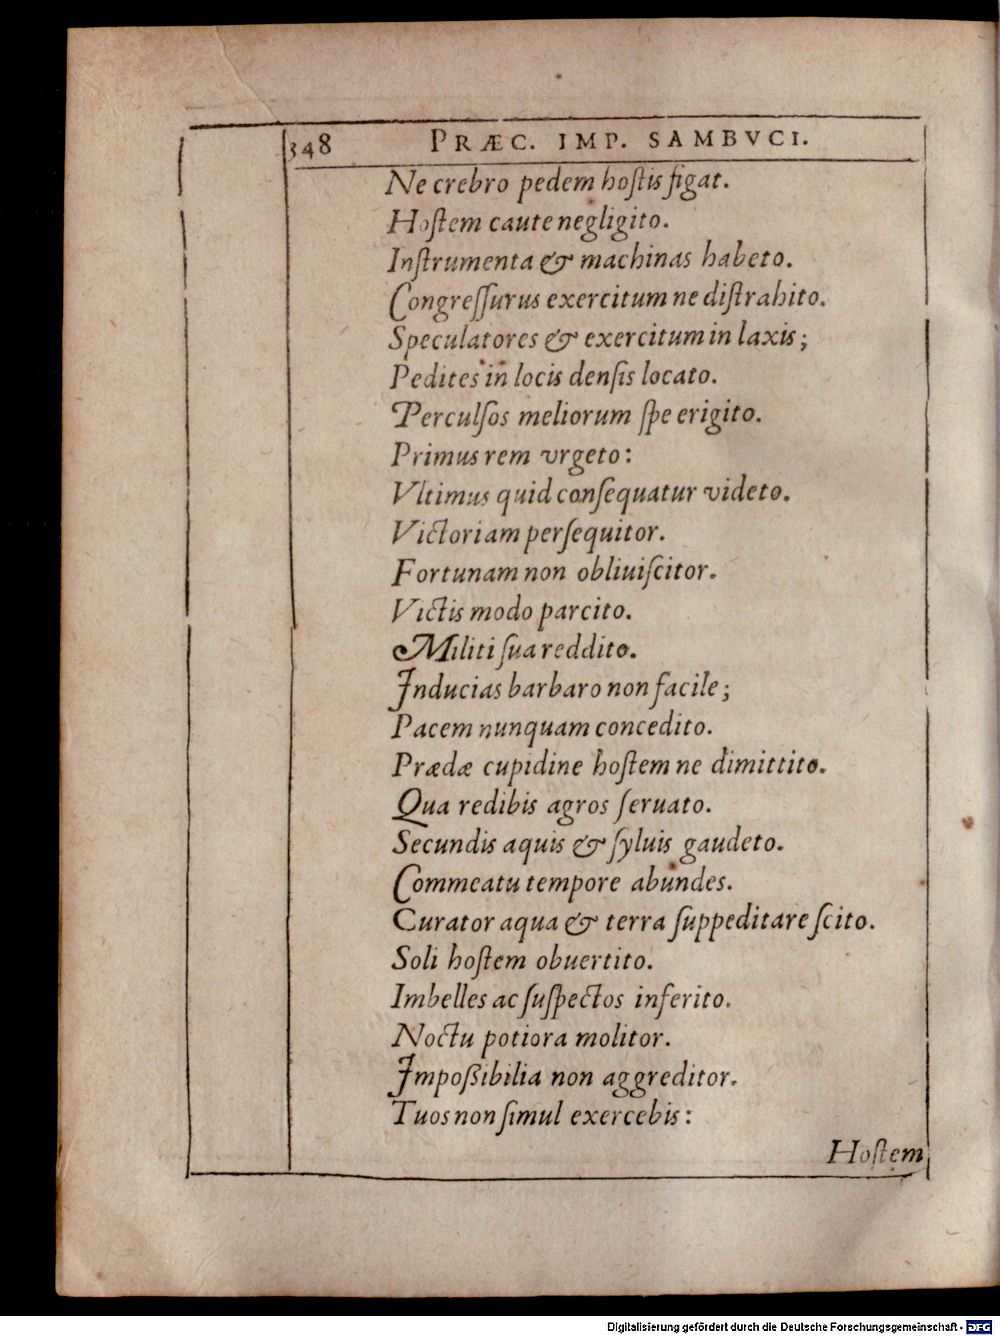 348 PRÆC. IMP. SAMBVCI.
Ne crebro pedem hoſtis figat.
Hoſtem caute negligito.
Inſtrumenta & machinas habeto.
Congreſſurus exercitum ne diſtrahito.
Speculatores & exercitum in laxis;
Pedites in locis denſis locato.
Perculſos meliorum ſpe erigito.
Primus rem vrgeto:
Vltimus quid conſequatur videto.
Victoriam perſequitor.
Fortunam non obliuiſcitor.
Victis modo parcito.
Militi ſua reddito.
Inducias barbaro non facile;
Pacem nunquam concedito.
Prædæ cupidine hoſtem ne dimittito.
Qua redibis agros ſeruato.
Secundis aquis & ſyluis gaudeto.
Commeatu tempore abundes.
Curator aqua & terra ſuppeditare ſcito.
Soli hoſtem obuertito.
Imbelles ac ſuſpectos inferito.
Noctu potiora molitor.
Impoßibilia non aggreditor.
Tuos non ſimul exercebis:
Hoſtem
Digitalisierung gefördert durch die Deutsche Forschungsgemeinschaft - DFG